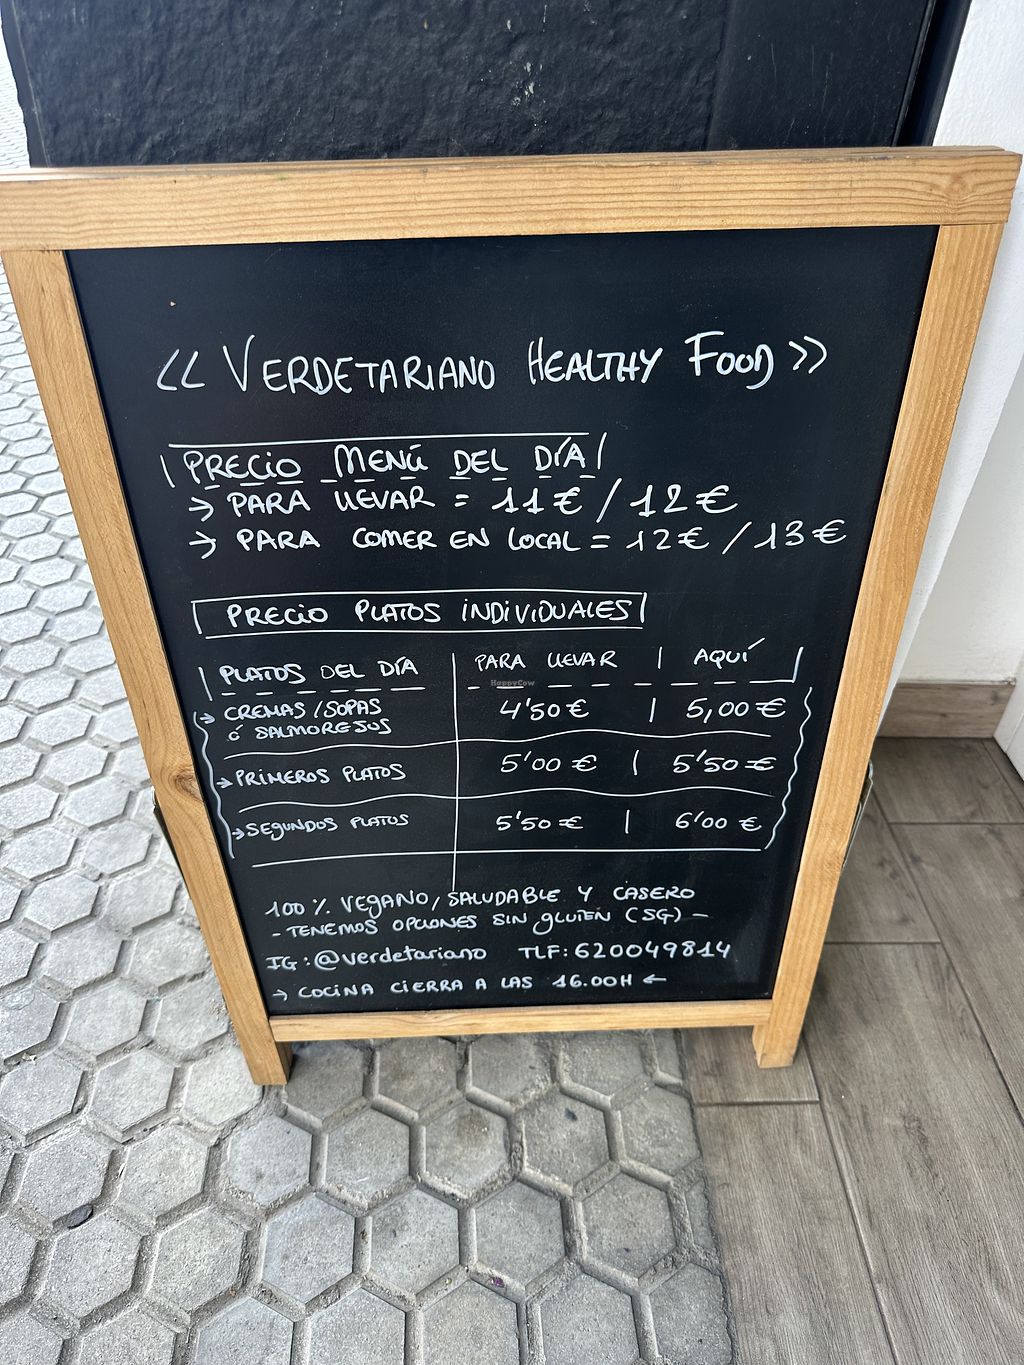 << VERDETARIANO HEALTHY FOOD >>
| PRECIO MENÚ DEL DÍA |
→ PARA LLEVAR = 11€ / 12€
→ PARA COMER EN LOCAL = 12€ / 13€
PRECIO PLATOS INDIVIDUALES
| PLATOS DEL DÍA | PARA LLEVAR | AQUÍ |
HappyCow
→ CREMAS / SOPAS Ó SALMOREJOS | 4'50€ | 5,00€
→ PRIMEROS PLATOS | 5'00€ | 5'50€
→ SEGUNDOS PLATOS | 5'50€ | 6'00€
100% VEGANO, SALUDABLE Y CASERO
- TENEMOS OPCIONES SIN GLUTEN (SG) -
IG: @verdetariano TLF: 620049814
→ COCINA CIERRA A LAS 16.00H ←